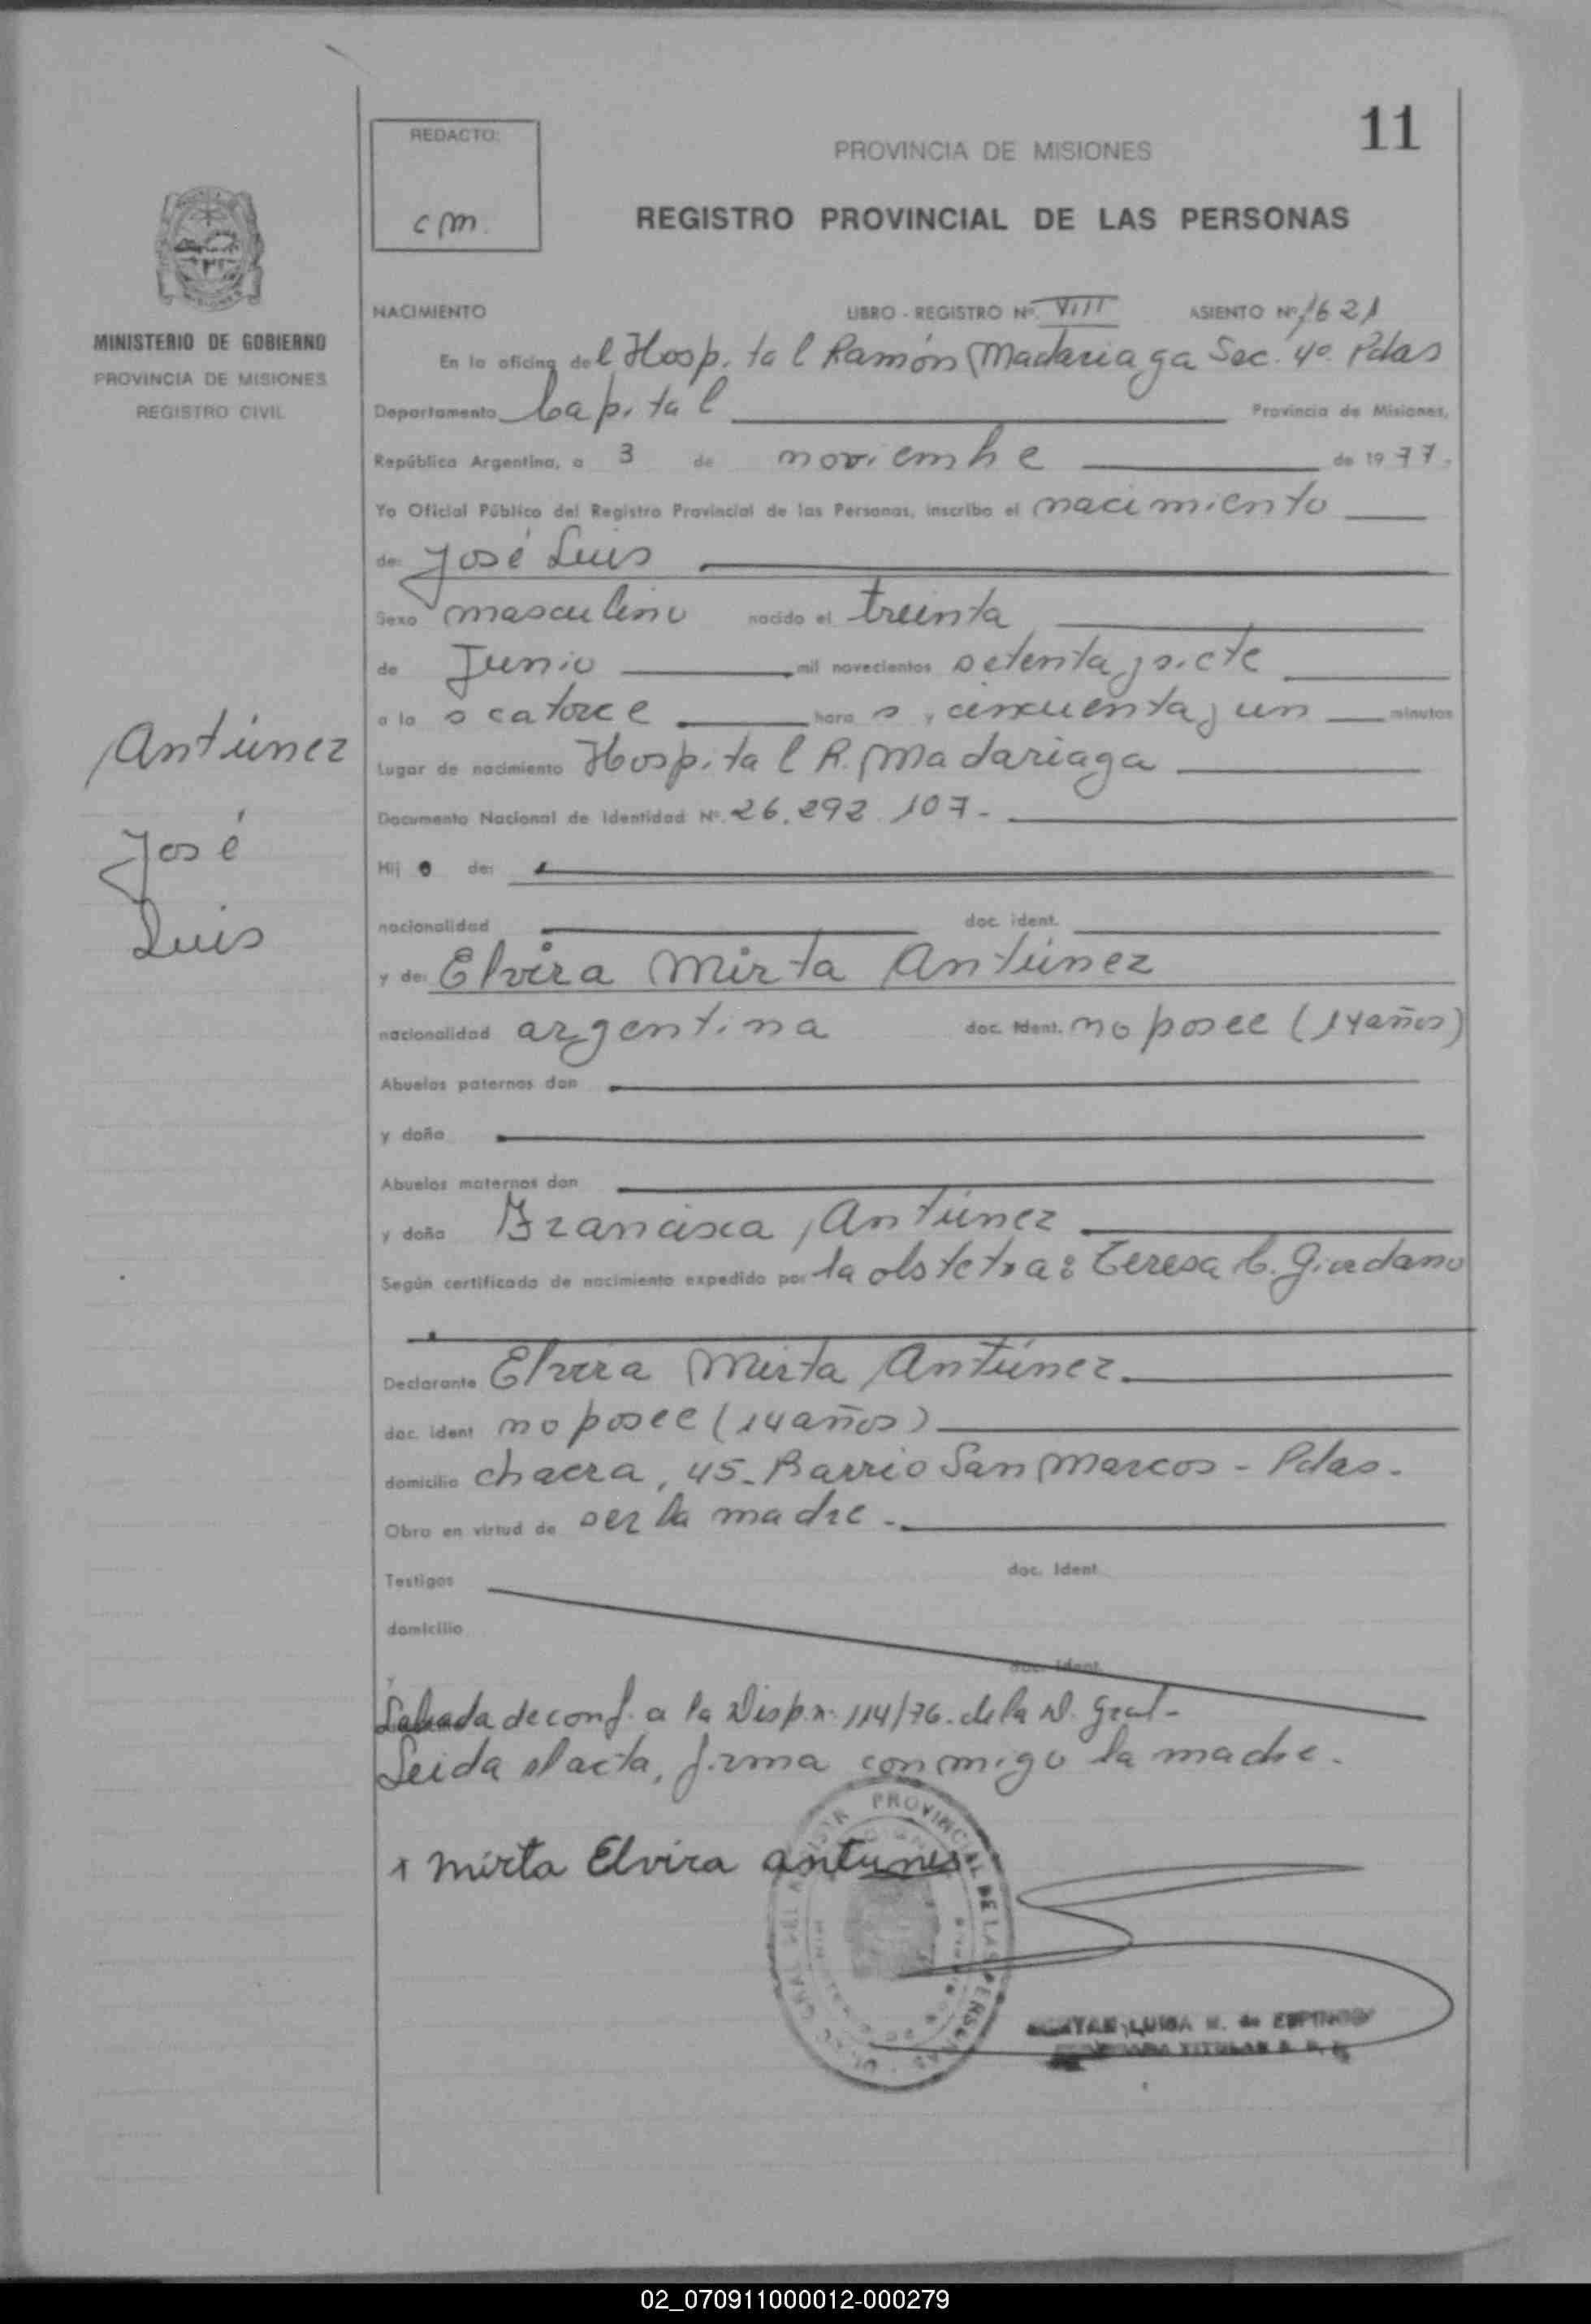 11
REDACTO:
cm.
PROVINCIA DE MISIONES
REGISTRO PROVINCIAL DE LAS PERSONAS
MINISTERIO DE GOBIERNO
PROVINCIA DE MISIONES
REGISTRO CIVIL
NACIMIENTO LIBRO - REGISTRO Nº VIII ASIENTO Nº 1621
En la oficina del Hospital Ramón Madariaga Sec. 4º. Pdas
Departamento Capital Provincia de Misiones,
República Argentina, a 3 de noviembre de 1977.
Yo Oficial Público del Registro Provincial de las Personas, inscribo el nacimiento
de: José Luis
Sexo masculino nacido el treinta
de Junio mil novecientos setenta y siete
a la s catorce hora s y cincuenta y un minutos
Lugar de nacimiento Hospital R. Madariaga
Documento Nacional de Identidad Nº. 26.292.107.-
Hij o de:
nacionalidad doc. ident.
y de: Elvira Mirta Antúnez
nacionalidad argentina doc. ident. no posee (14 años)
Abuelos paternos don
y doña
Abuelos maternos don
y doña Francisca Antúnez
Según certificado de nacimiento expedido por la obstetra: Teresa C. Giordano
Declarante Elvira Mirta Antúnez.
doc. ident no posee (14 años)
domicilio chacra, 45- Barrio San Marcos - Pdas.
Obra en virtud de ser la madre.
Testigos doc. Ident.
domicilio
doc. Ident.
Labrada de conf. a la Disp. n. 114/76. de la D. Gral-
Leida el acta, firma conmigo la madre.
x mirta Elvira antunes
PROVINCIAL DE LAS PERSONAS
LUISA M. de ESPINOSA
TITULAR
Antúnez
José
Luis
02_070911000012-000279